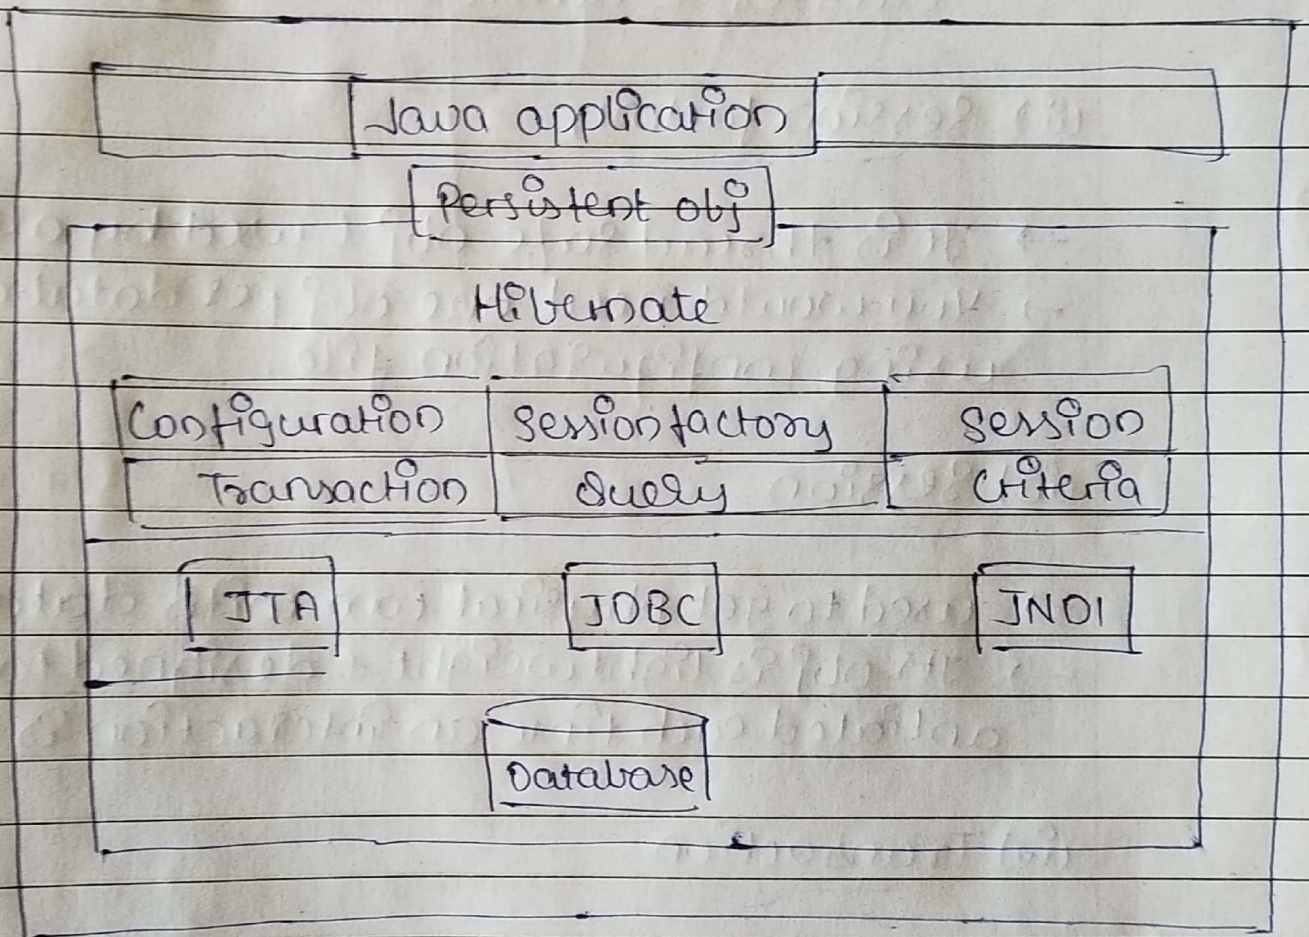 Java application
Persistent obj
Hibernate
Configuration Sessionfactory Session
Transaction Query Criteria
JTA JDBC JNDI
Database